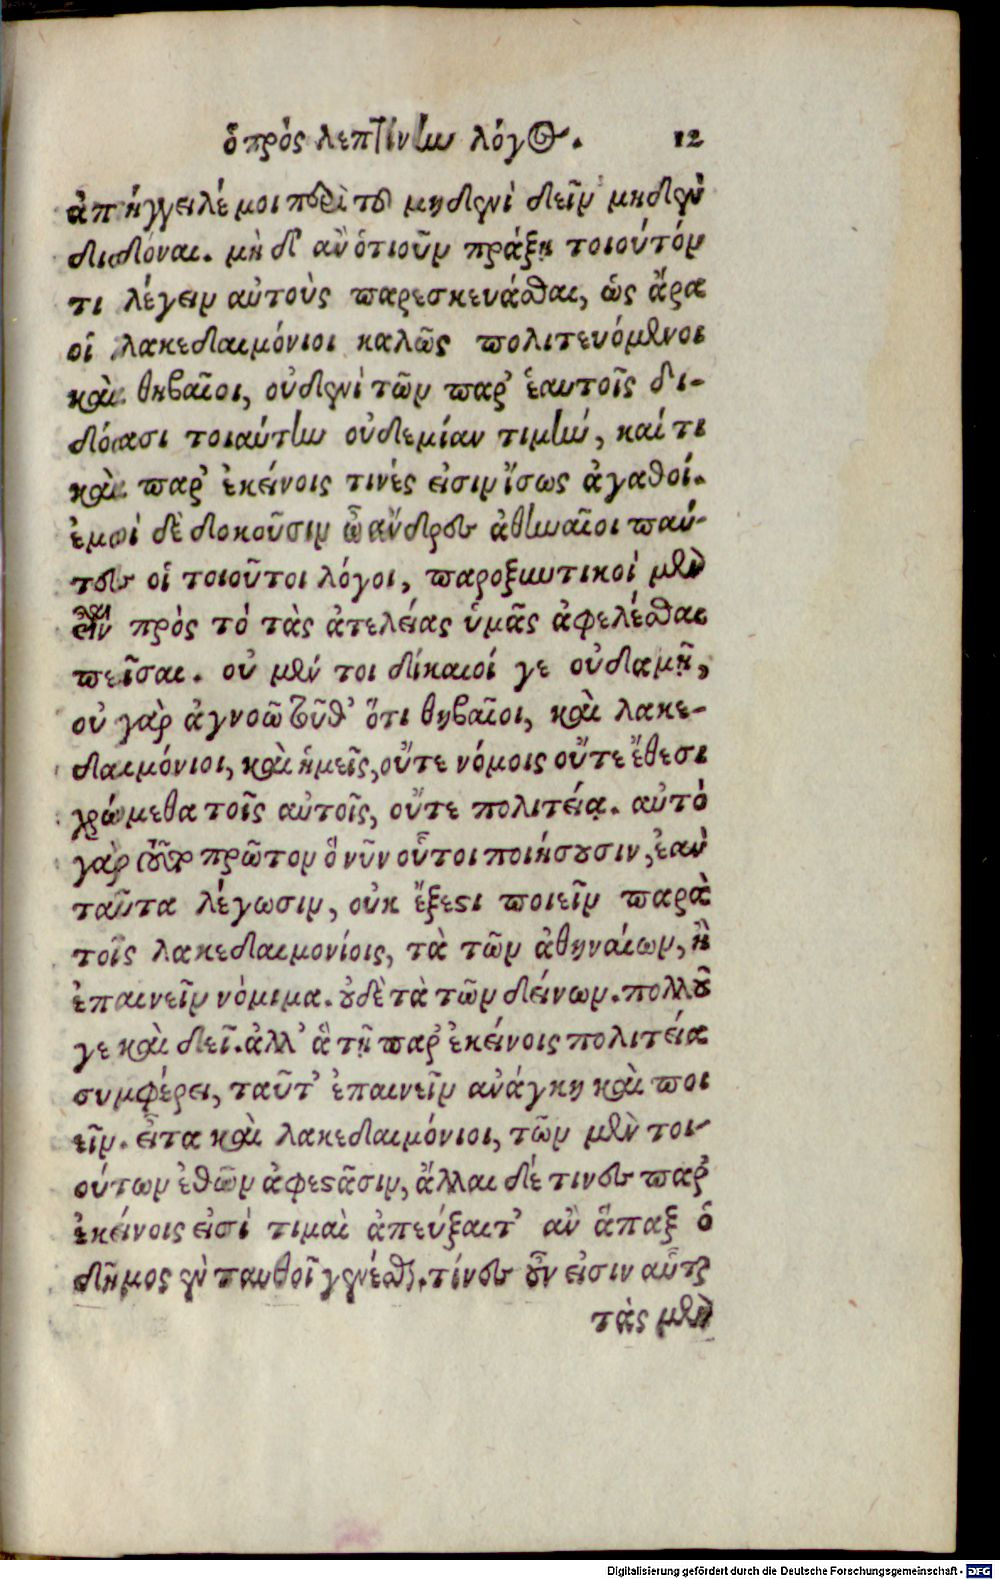 ὁ πρὸς λεπτίνην λόγος. 12
ἀπήγγειλέ μοι περὶ τοῦ μηδενὶ δεῖν μηδὲν
διδόναι. μὴ δ' ἂν ὁτιοῦν πράξῃ τοιοῦτόν
τι λέγειν αὐτοὺς παρεσκευάσθαι, ὡς ἄρα
οἱ λακεδαιμόνιοι καλῶς πολιτευόμενοι
καὶ θηβαῖοι, οὐδενὶ τῶν παρ' ἑαυτοῖς δι-
δόασι τοιαύτην οὐδεμίαν τιμὴν, καί τι
καὶ παρ' ἐκείνοις τινές εἰσιν ἴσως ἀγαθοί.
ἐμοὶ δὲ δοκοῦσιν ὦ ἄνδρες ἀθηναῖοι πάν-
τες οἱ τοιοῦτοι λόγοι, παροξυντικοὶ μὲν
εἶν πρὸς τὸ τὰς ἀτελείας ὑμᾶς ἀφελέσθαι
πεῖσαι. οὐ μέν τοι δίκαιοί γε οὐδαμῇ,
οὐ γὰρ ἀγνοῶ τοῦθ' ὅτι θηβαῖοι, καὶ λακε-
δαιμόνιοι, καὶ ἡμεῖς, οὔτε νόμοις οὔτε ἔθεσι
χρώμεθα τοῖς αὐτοῖς, οὔτε πολιτείᾳ. αὐτὸ
γὰρ τοῦτο πρῶτον ὃ νῦν οὗτοι ποιήσουσιν, ἐὰν
ταῦτα λέγωσιν, οὐκ ἔξεστι ποιεῖν παρὰ
τοῖς λακεδαιμονίοις, τὰ τῶν ἀθηναίων, ἢ
ἐπαινεῖν νόμιμα. οὐδὲ τὰ τῶν δείνων. πολλοῦ
γε καὶ δεῖ. ἀλλ' ἃ τῇ παρ' ἐκείνοις πολιτείᾳ
συμφέρει, ταῦτ' ἐπαινεῖν ἀνάγκη καὶ ποι
εῖν. εἶτα καὶ λακεδαιμόνιοι, τῶν μὲν τοι-
ούτων ἐθῶν ἀφεστᾶσιν, ἄλλαι δέ τινες παρ'
ἐκείνοις εἰσὶ τιμαὶ ἀπεύξαιτ' ἂν ἅπαξ ὁ
δῆμος ἐν ταυθοῖ γενέσθαι. τίνες οὖν εἰσιν αὗται
τὰς μὲν
Digitalisierung gefördert durch die Deutsche Forschungsgemeinschaft - DFG